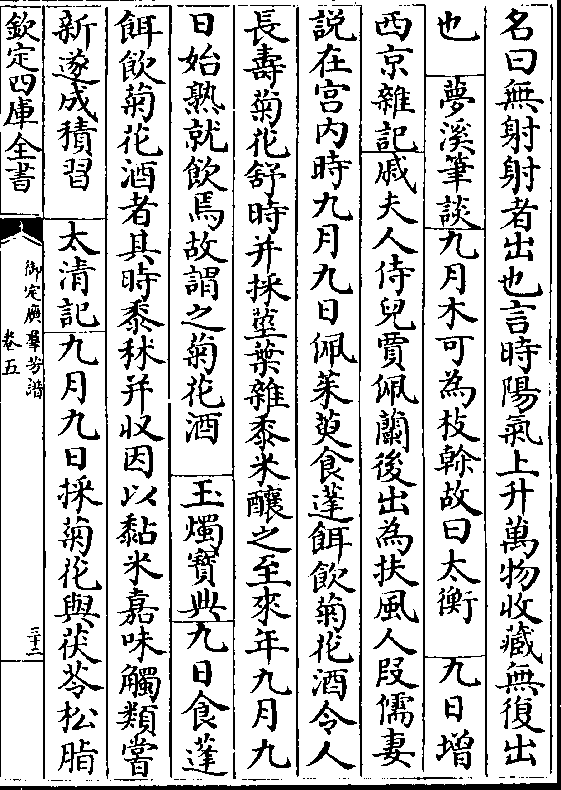 名曰無射射者出也言時陽氣上升萬物收藏無復出
也　夢溪筆談九月木可為枝榦故曰太衡　九日增
西京雜記戚夫人侍兒賈佩蘭後出為扶風人段儒妻
説在宫内時九月九日佩茱萸食蓬餌飲菊花酒令人
長壽菊花舒時并採莖葉雜黍米釀之至來年九月九
日始熟就飲焉故謂之菊花酒　玉燭寶典九日食蓬
餌飲菊花酒者其時黍秫并收因以黏米嘉味觸類嘗
新遂成積習　太清記九月九日採菊花與茯苓松脂
欽定四庫全書
御定廣羣芳譜
卷五
三十二